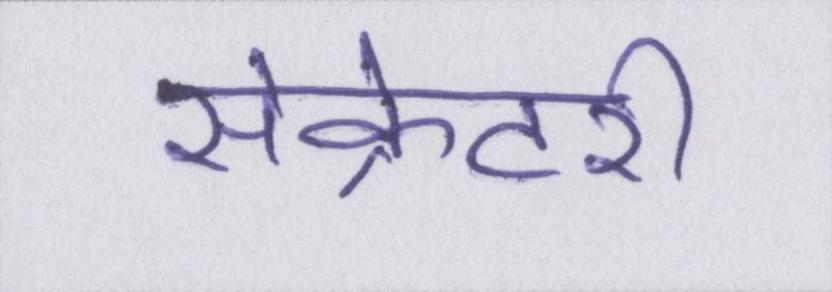 सेक्रेटरी